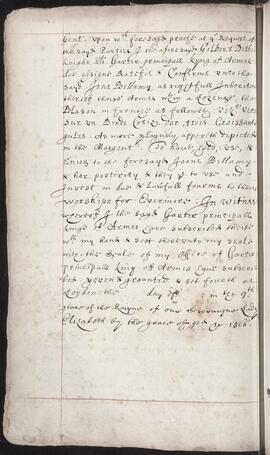 Gent. upon wch foresayd proofe at ye Request of
the sayd Parties I the aforesayd Gilbert Dethik
knight als Garter principall king of Armes
doe assigne Ratefie & Confirme unto the
sayd Jone Bellamy as right full Inheritor
thereof those Armes in a Lozenge the
Blason in forme as followeth
sur un Bende
gules. As more playnly appereth depicted
in the Margent. To haue, hold, use, &
Enioy to the foresayd Joane Bellamy
& her posterity & they yt to use and
Invest in due & Lawfull fourme to their
worships for Evermore. In witnes
whereof I the sayd Garter principall
kinge of Armes haue subscribed these
with my hand & sett thereunto my seale
the Seale of my Office of Garter
principall king of Armes
yeven & graunted & set fourth at
London the day of in the 9th
yeare of the Raigne of our Soveraigne Lady
Elizabeth by the grace of god &c 1566.